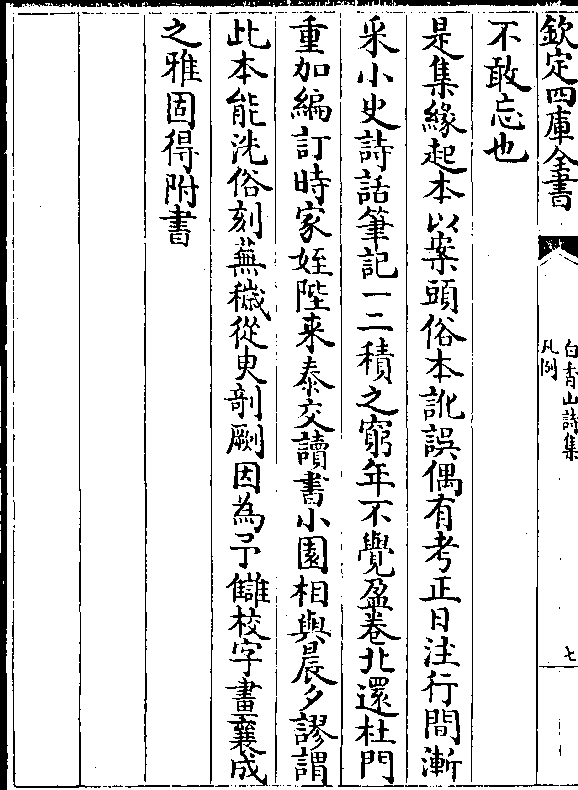 欽定四庫全書
白香山詩集
凡例
七
不敢忘也
是集緣起本以案頭俗本訛誤偶有考正日注行間漸
采小史詩話筆記一二積之窮年不覺盈卷北還杜門
重加編訂時家姪陛来泰交讀書小園相與晨夕謬謂
此本能洗俗刻蕪穢從臾剞劂因為予讎校字畫襄成
之雅固得附書